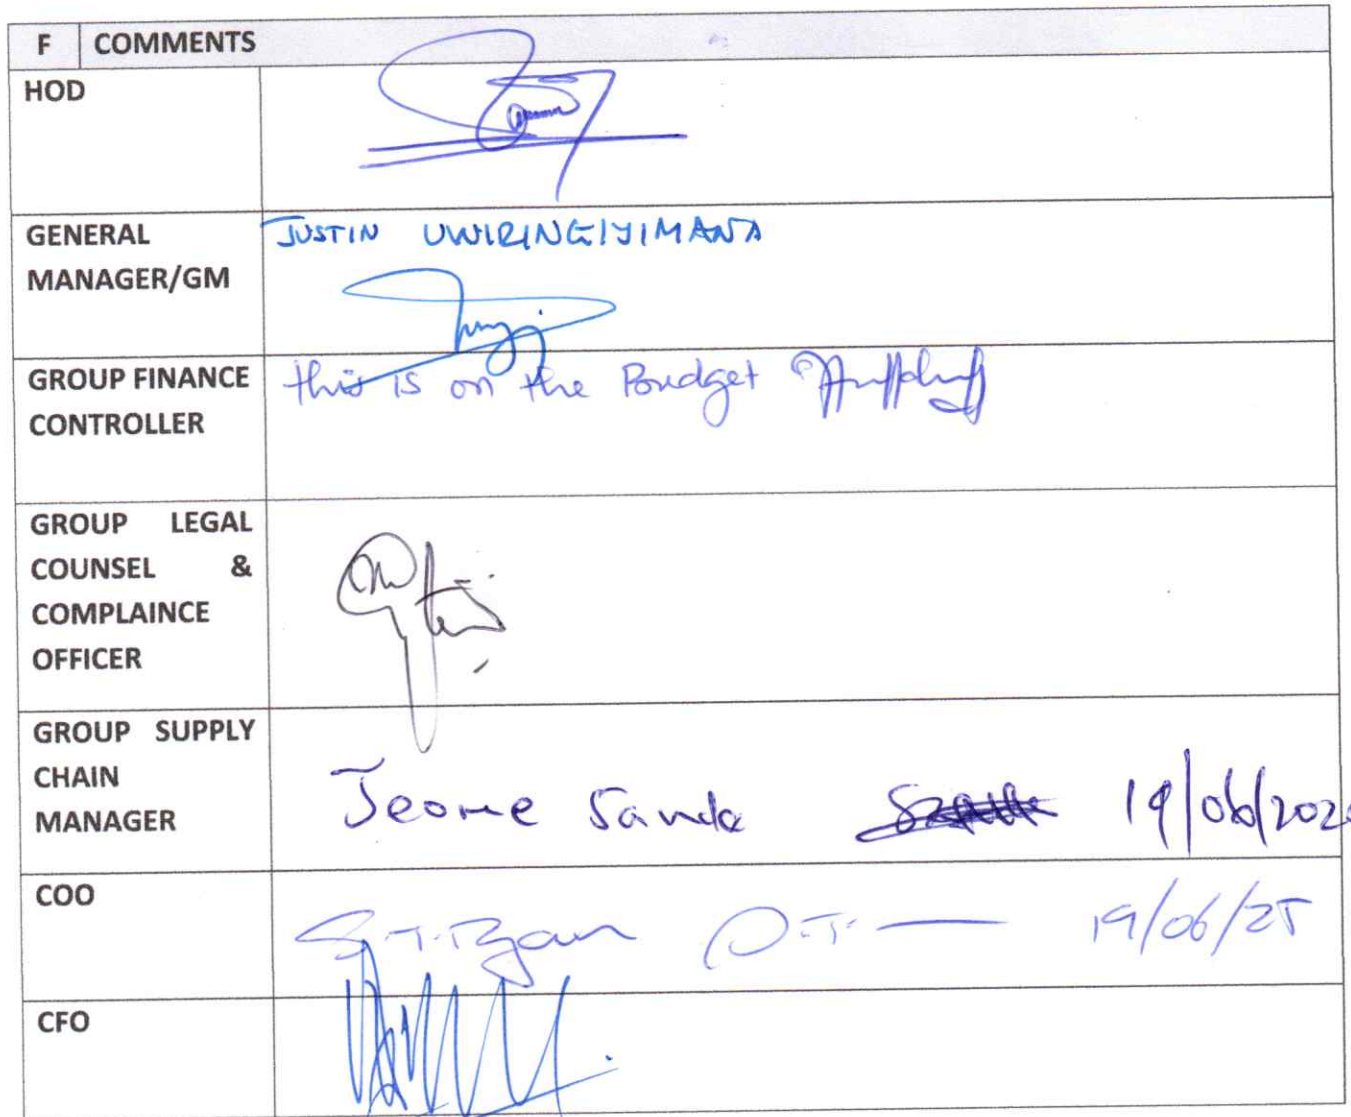 F COMMENTS
HOD
GENERAL
MANAGER/GM
JUSTIN UWIRINGIYIMANA
GROUP FINANCE
CONTROLLER
this is on the Budget
GROUP LEGAL
COUNSEL &
COMPLAINCE
OFFICER
GROUP SUPPLY
CHAIN
MANAGER
Jeorme Sanda 19/06/202
COO
S.T. Ryan 19/06/25
CFO